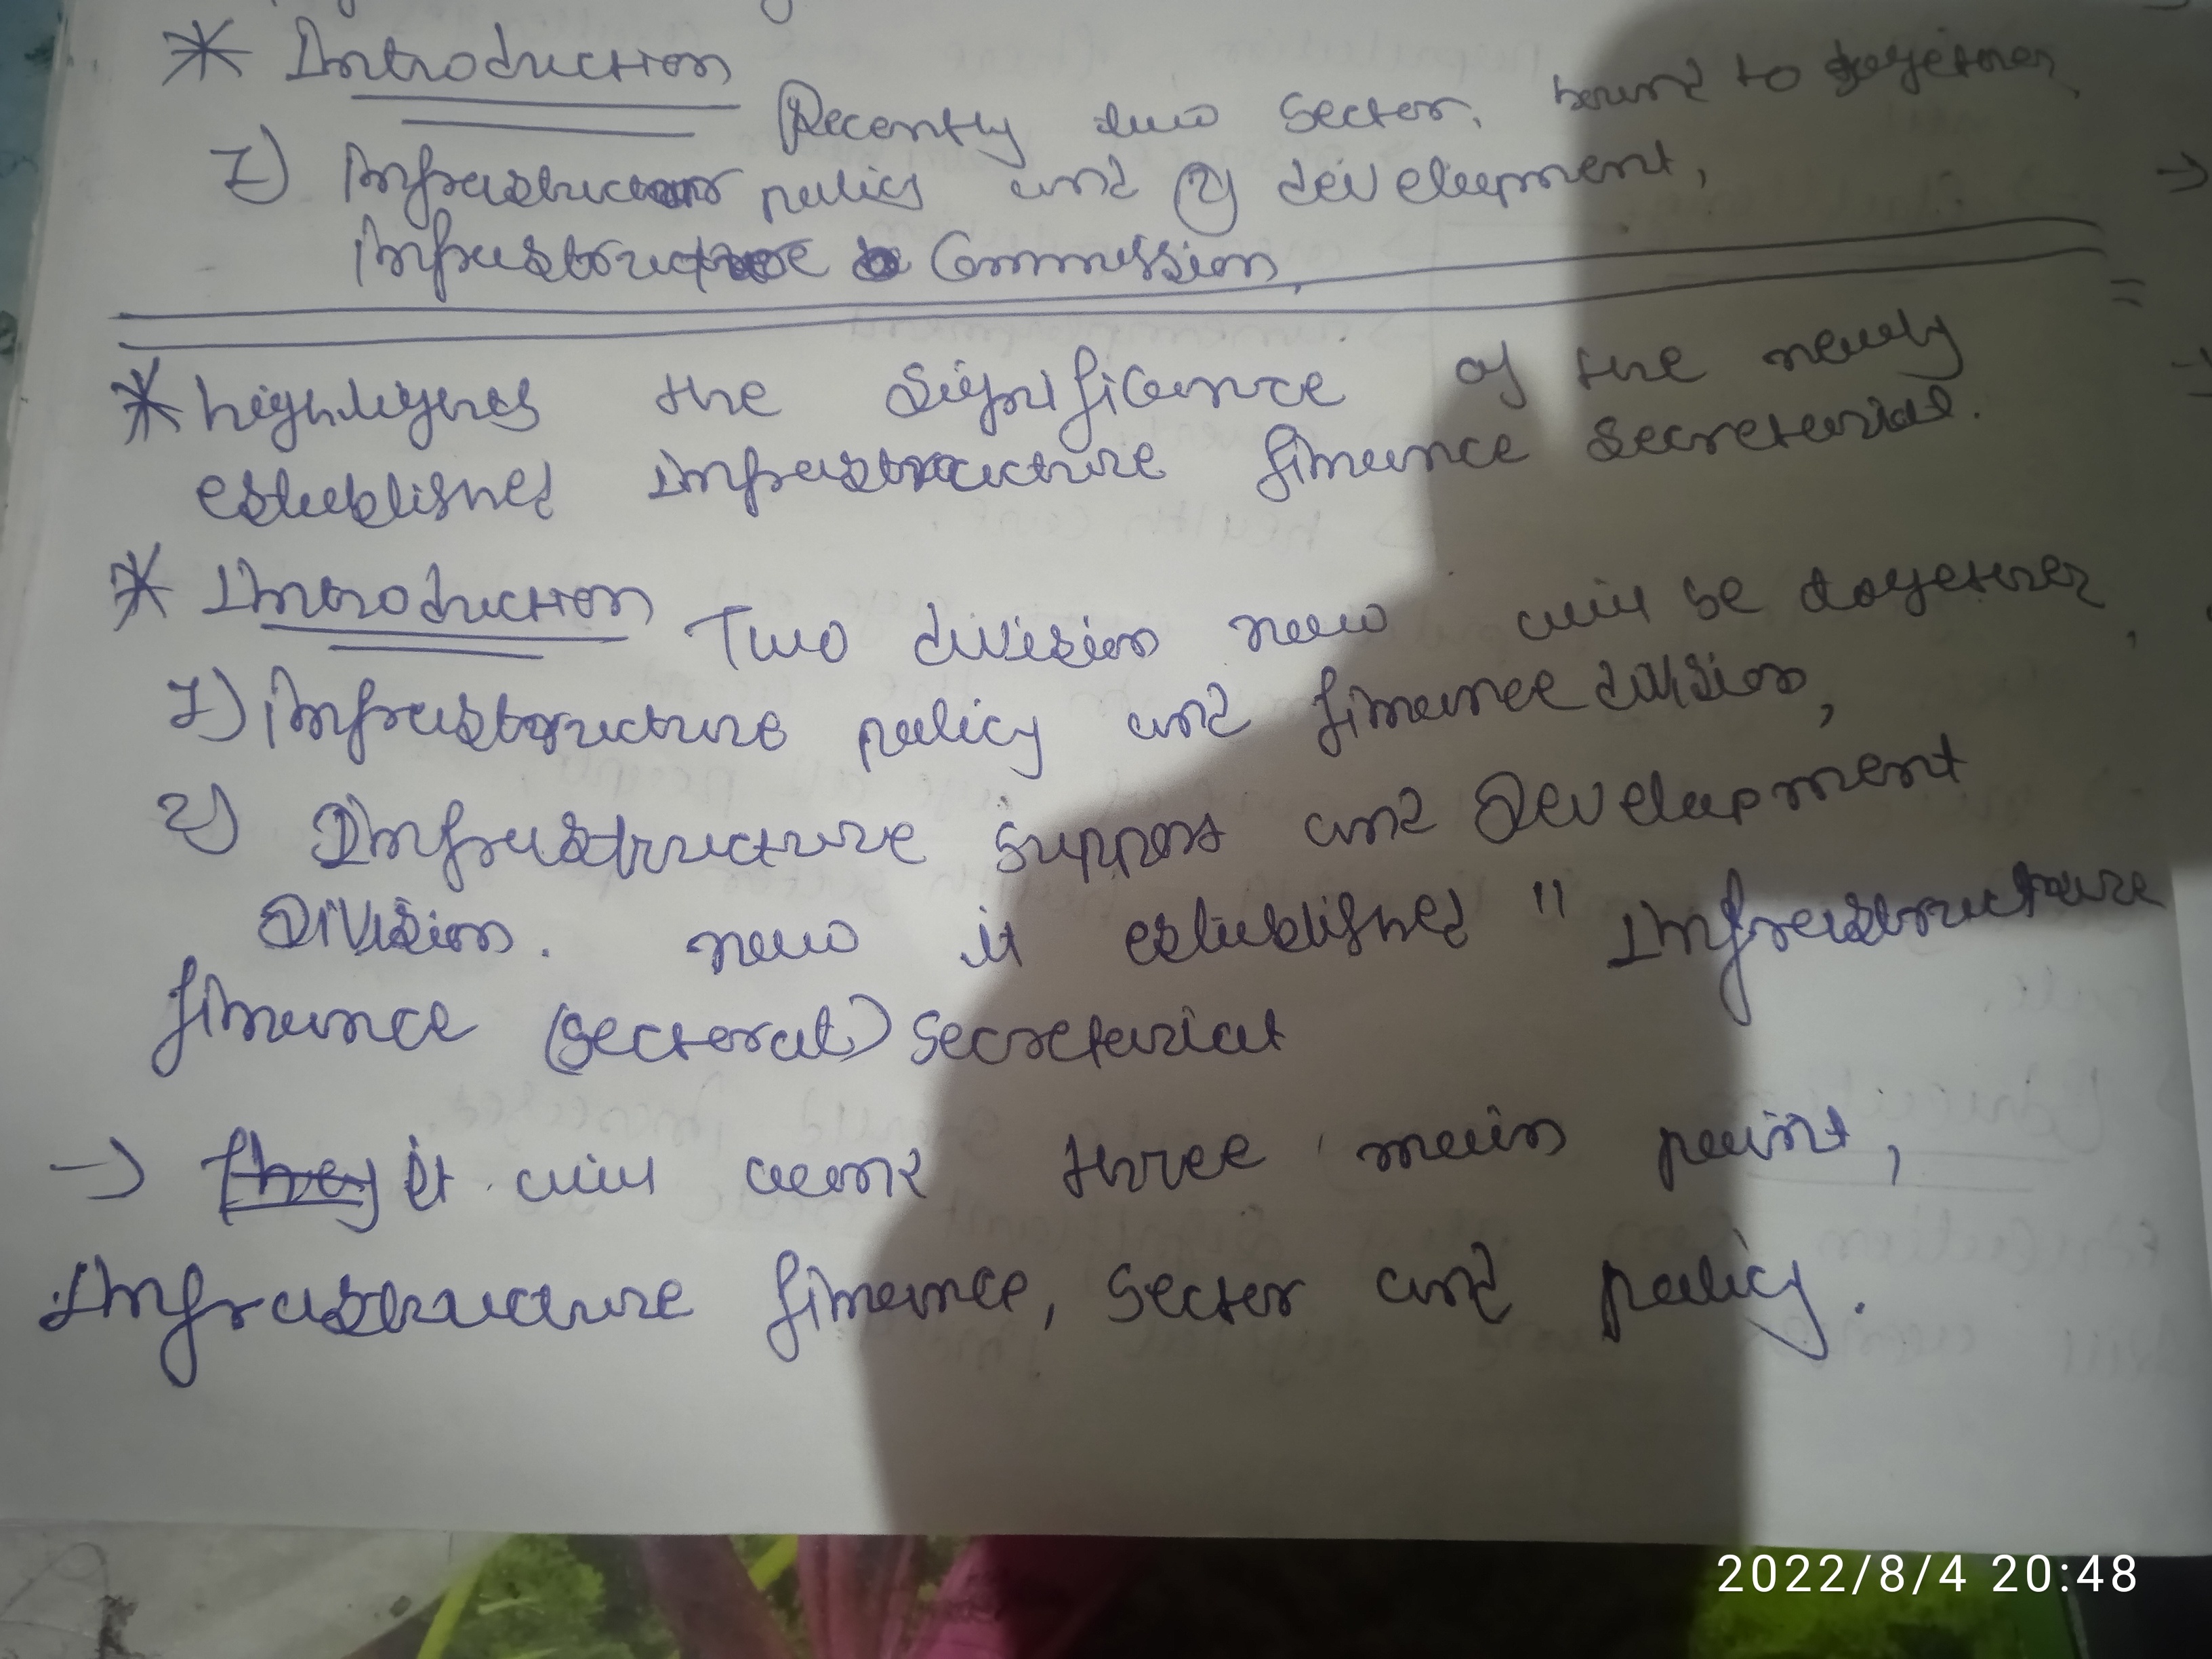 * Introduction
Recently two sector, bound to together,
1) Infrastructur policy and 2) development,
Infrastructure Commission,
* highlights the significance of the newly
established Infrastructure finance secretariat.
* Introduction Two division now will be together,
1) Infrastructure policy and finance division,
2) Infrastructure support and Development
Division. now it established " Infrastructure
finance (sectorat) secretariat
→ they it will work three main point,
Infrastructure finance, sector and policy.
2022/8/4 20:48